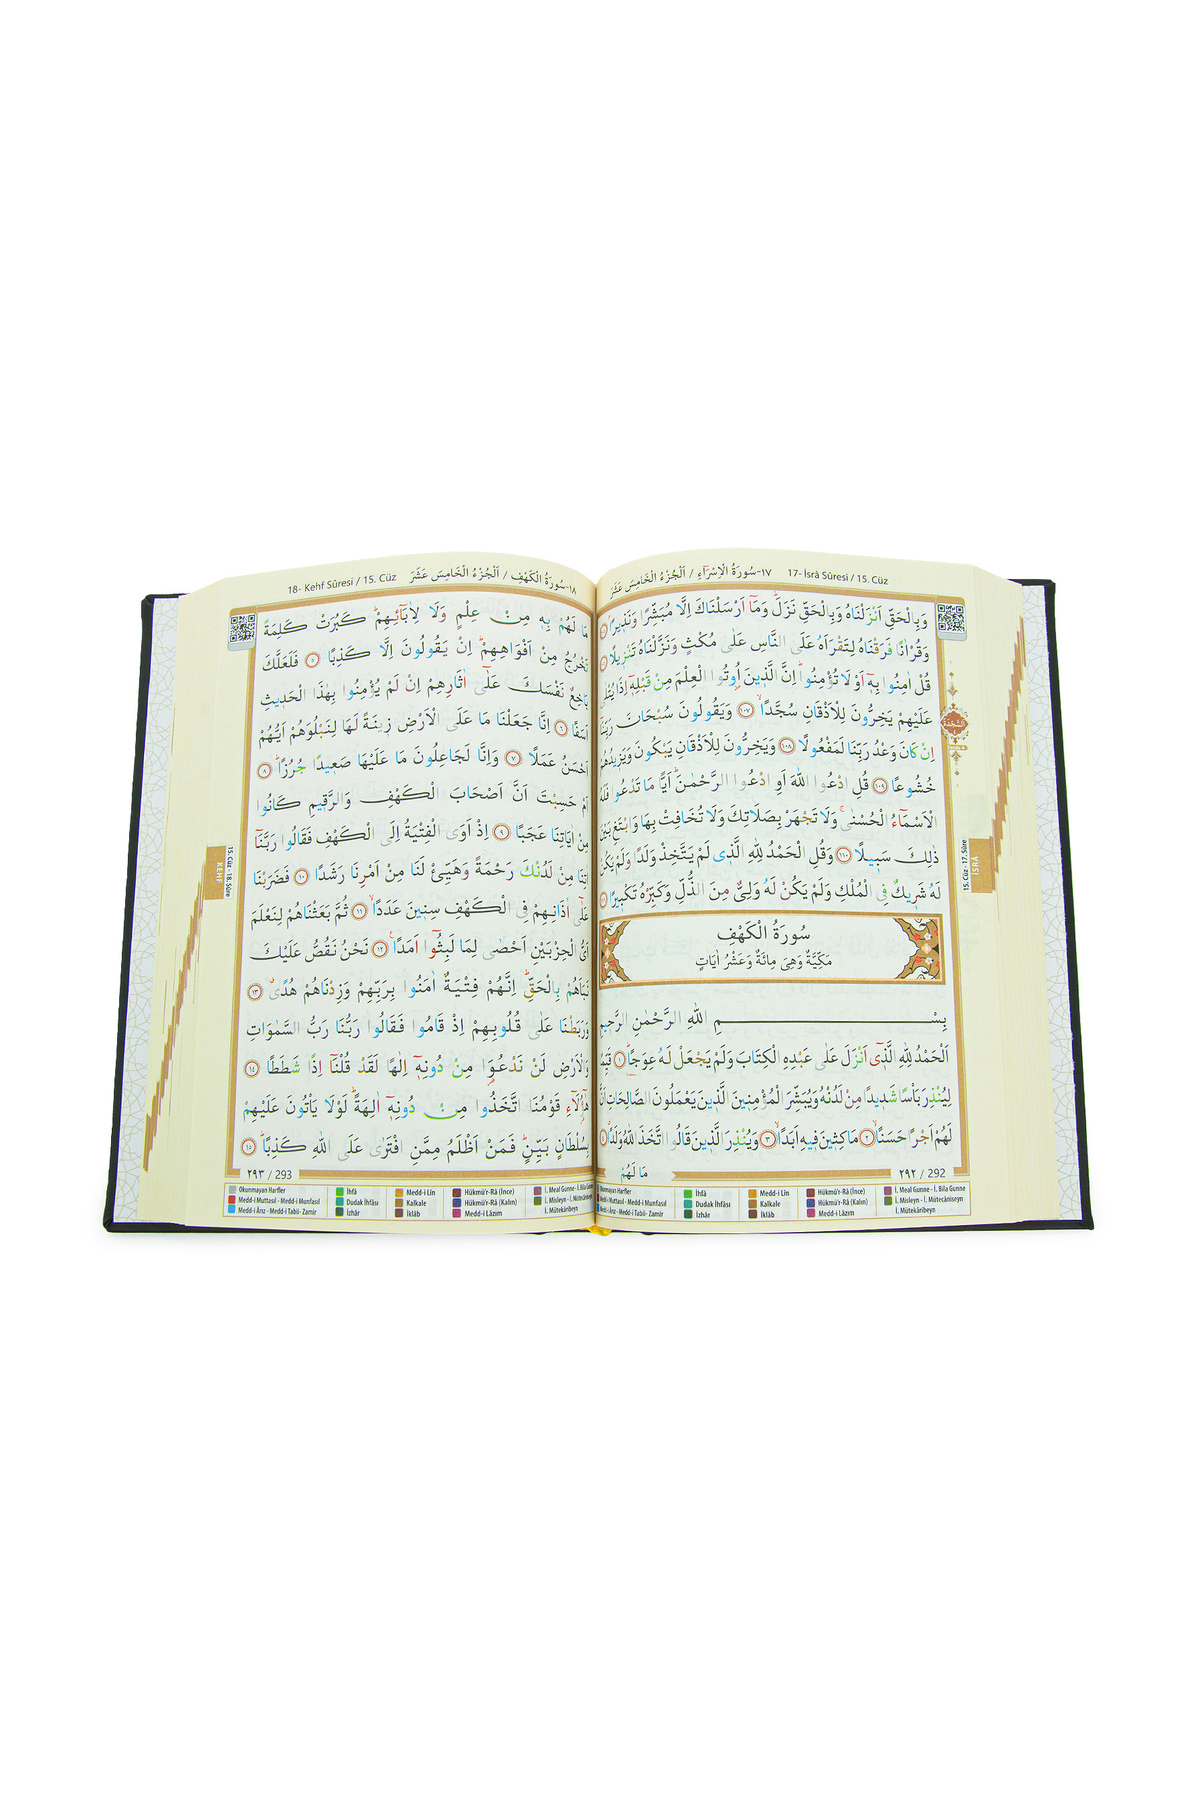 ١٧-سُورَةُ الْاِسْرَٓاءِ / اَلْجُزْءُ الْخَامِسَ عَشَرَ 17- İsrâ Sûresi / 15. Cüz
وَبِالْحَقِّ اَنْزَلْنَاهُ وَبِالْحَقِّ نَزَلَۜ وَمَٓا اَرْسَلْنَاكَ اِلَّا مُبَشِّرًا وَنَذِيرًاۢ
وَقُرْاٰنًا فَرَقْنَاهُ لِتَقْرَاَهُ عَلَى النَّاسِ عَلٰى مُكْثٍ وَنَزَّلْنَاهُ تَنْزِيلًا
قُلْ اٰمِنُوا بِهٖٓ اَوْ لَا تُؤْمِنُواۜ اِنَّ الَّذِينَ اُو۫تُوا الْعِلْمَ مِنْ قَبْلِهٖٓ اِذَا يُتْلٰى
عَلَيْهِمْ يَخِرُّونَ لِلْاَذْقَانِ سُجَّدًاۙ ١٠٧ وَيَقُولُونَ سُبْحَانَ رَبِّنَٓا
اِنْ كَانَ وَعْدُ رَبِّنَا لَمَفْعُولًا ١٠٨ وَيَخِرُّونَ لِلْاَذْقَانِ يَبْكُونَ وَيَزِيدُهُمْ
خُشُوعًا ١٠٩ قُلِ ادْعُوا اللّٰهَ اَوِ ادْعُوا الرَّحْمٰنَۜ اَيًّا مَا تَدْعُوا فَلَهُ
الْاَسْمَٓاءُ الْحُسْنٰىۚ وَلَا تَجْهَرْ بِصَلَاتِكَ وَلَا تُخَافِتْ بِهَا وَابْتَغِ بَيْنَ
ذٰلِكَ سَبِيلًا ١١٠ وَقُلِ الْحَمْدُ لِلّٰهِ الَّذِى لَمْ يَتَّخِذْ وَلَدًا وَلَمْ يَكُنْ
لَهُ شَرِيكٌ فِى الْمُلْكِ وَلَمْ يَكُنْ لَهُ وَلِىٌّ مِنَ الذُّلِّ وَكَبِّرْهُ تَكْبِيرًا
سُورَةُ الْكَهْفِ
مَكِّيَّةٌ وَهِىَ مِائَةٌ وَعَشْرُ اٰيَاتٍ
بِسْــــــــمِ اللّٰهِ الرَّحْمٰنِ الرَّحِيمِ
اَلْحَمْدُ لِلّٰهِ الَّذِٓى اَنْزَلَ عَلٰى عَبْدِهِ الْكِتَابَ وَلَمْ يَجْعَلْ لَهُ عِوَجًاۜ ١ قَيِّمًا
لِيُنْذِرَ بَأْسًا شَدِيدًا مِنْ لَدُنْهُ وَيُبَشِّرَ الْمُؤْمِنِينَ الَّذِينَ يَعْمَلُونَ الصَّالِحَاتِ اَنَّ
لَهُمْ اَجْرًا حَسَنًاۙ ٢ مَاكِثِينَ فِيهِ اَبَدًاۙ ٣ وَيُنْذِرَ الَّذِينَ قَالُوا اتَّخَذَ اللّٰهُ وَلَدًاۗ ٤
مَا لَهُمْ
٢٩٢ / 292
15. Cüz - 17. Sûre
İSRÂ
Okunmayan Harfler
Medd-i Muttasıl - Medd-i Munfasıl
Medd-i Ârız - Medd-i Tabii- Zamir
İhfâ
Dudak İhfâsı
İzhâr
Medd-i Lin
Kalkale
İklâb
Hükmü'r-Râ (İnce)
Hükmü'r-Râ (Kalın)
Medd-i Lâzım
İ. Meal Gunne - İ. Bila Gunne
İ. Misleyn - İ. Mütecâniseyn
İ. Mütekâribeyn
18- Kehf Sûresi / 15. Cüz ١٨-سُورَةُ الْكَهْفِ / اَلْجُزْءُ الْخَامِسَ عَشَرَ
مَا لَهُمْ بِهٖ مِنْ عِلْمٍ وَلَا لِاٰبَٓائِهِمْۜ كَبُرَتْ كَلِمَةً
تَخْرُجُ مِنْ اَفْوَاهِهِمْۜ اِنْ يَقُولُونَ اِلَّا كَذِبًا ٥ فَلَعَلَّكَ
بَاخِعٌ نَفْسَكَ عَلٰٓى اٰثَارِهِمْ اِنْ لَمْ يُؤْمِنُوا بِهٰذَا الْحَدِيثِ
اَسَفًا ٦ اِنَّا جَعَلْنَا مَا عَلَى الْاَرْضِ زِينَةً لَهَا لِنَبْلُوَهُمْ اَيُّهُمْ
اَحْسَنُ عَمَلًا ٧ وَاِنَّا لَجَاعِلُونَ مَا عَلَيْهَا صَعِيدًا جُرُزًاۜ ٨
اَمْ حَسِبْتَ اَنَّ اَصْحَابَ الْكَهْفِ وَالرَّقِيمِ كَانُوا
مِنْ اٰيَاتِنَا عَجَبًا ٩ اِذْ اَوَى الْفِتْيَةُ اِلَى الْكَهْفِ فَقَالُوا رَبَّنَٓا
اٰتِنَا مِنْ لَدُنْكَ رَحْمَةً وَهَيِّئْ لَنَا مِنْ اَمْرِنَا رَشَدًا ١٠ فَضَرَبْنَا
عَلٰٓى اٰذَانِهِمْ فِى الْكَهْفِ سِنِينَ عَدَدًاۙ ١١ ثُمَّ بَعَثْنَاهُمْ لِنَعْلَمَ
اَىُّ الْحِزْبَيْنِ اَحْصٰى لِمَا لَبِثُٓوا اَمَدًاۚ ١٢ نَحْنُ نَقُصُّ عَلَيْكَ
نَبَاَهُمْ بِالْحَقِّۜ اِنَّهُمْ فِتْيَةٌ اٰمَنُوا بِرَبِّهِمْ وَزِدْنَاهُمْ هُدًىۗ ١٣
وَرَبَطْنَا عَلٰى قُلُوبِهِمْ اِذْ قَامُوا فَقَالُوا رَبُّنَا رَبُّ السَّمٰوَاتِ
وَالْاَرْضِ لَنْ نَدْعُوَ۬ا مِنْ دُونِهٖٓ اِلٰهًا لَقَدْ قُلْنَٓا اِذًا شَطَطًا ١٤
هٰٓؤُ۬لَٓاءِ قَوْمُنَا اتَّخَذُوا مِنْ دُونِهٖٓ اٰلِهَةًۜ لَوْلَا يَأْتُونَ عَلَيْهِمْ
بِسُلْطَانٍ بَيِّنٍۜ فَمَنْ اَظْلَمُ مِمَّنِ افْتَرٰى عَلَى اللّٰهِ كَذِبًاۜ ١٥
٢٩٣ / 293
15. Cüz - 18. Sûre
KEHF
Okunmayan Harfler
Medd-i Muttasıl - Medd-i Munfasıl
Medd-i Ârız - Medd-i Tabii- Zamir
İhfâ
Dudak İhfâsı
İzhâr
Medd-i Lin
Kalkale
İklâb
Hükmü'r-Râ (İnce)
Hükmü'r-Râ (Kalın)
Medd-i Lâzım
İ. Meal Gunne - İ. Bila Gunne
İ. Misleyn - İ. Mütecâniseyn
İ. Mütekâribeyn